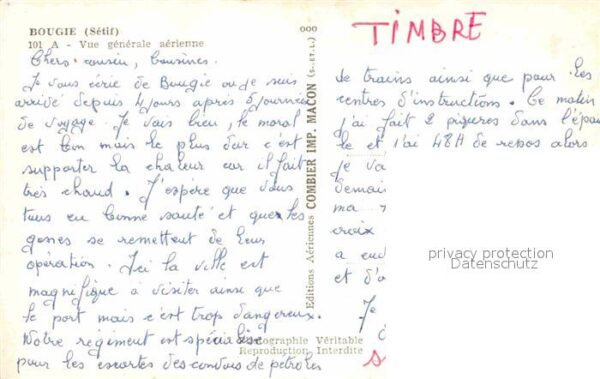 BOUGIE (Sétif)
101 A - Vue générale aérienne
Chers cousin, Cousines.
Je vous écrie de Bougie ou je suis
arrivé depuis 4 jours après 5 journées
de voyage. Je vais bien, le moral
est bon mais le plus dur c'est
supporter la chaleur car il fait
très chaud. J'espère que vous
tous en bonne santé et que les
genes se remettent de leur
opération. Ici la ville est
magnifique à visiter ainsi que
le port mais c'est trop dangereux.
Notre régiment est spécialisé
pour les escortes des convois de pétroles
ographie Véritable
Reproduction Interdite
Editions Aériennes COMBIER IMP. MACON (S.-ET-L.)
TIMBRE
de trains ainsi que pour les
centres d'instructions. Ce matin
j'ai fait 2 piqures dans l'épau
le et j'ai 48H de repos alors
je va
demai
ma
croix
a eu
et d'a
Je
privacy protection
Datenschutz